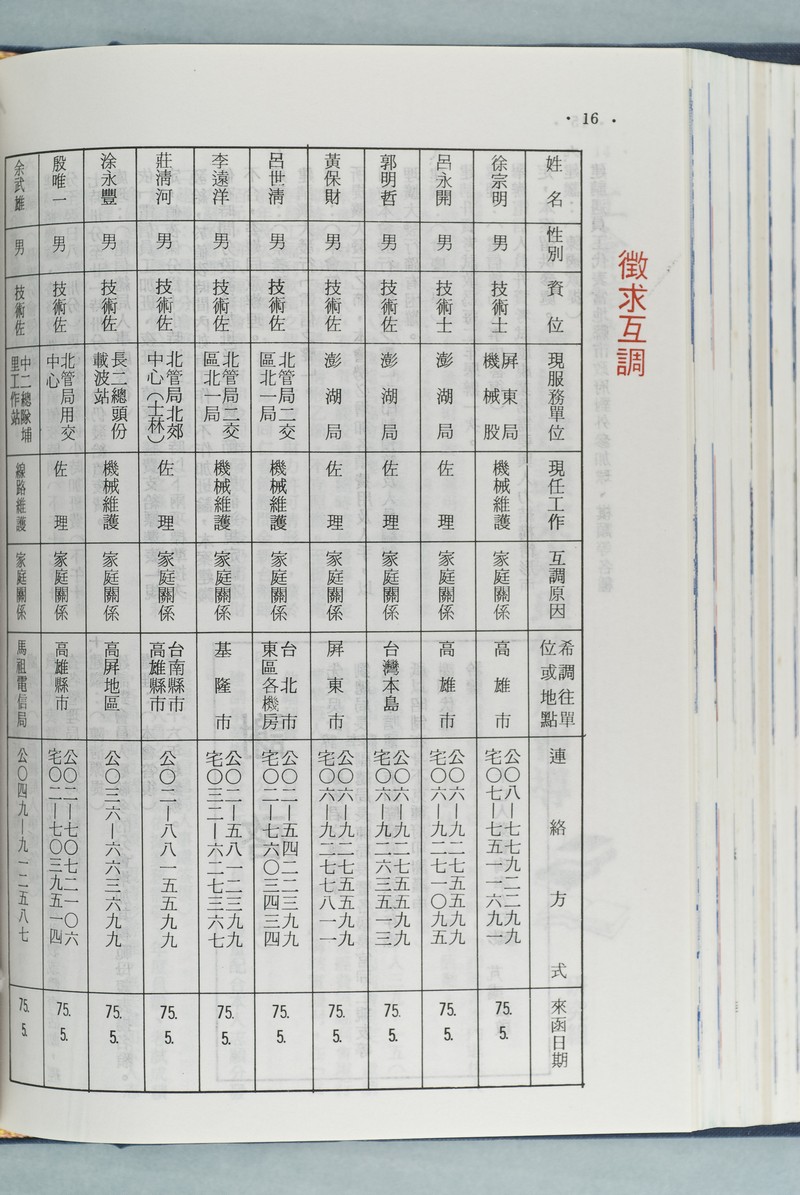 · 16 ·
徵求互調
姓名 性別 資位 現服務單位 現任工作 互調原因 希調往單位或地點 連絡方式 來函日期
徐宗明 男 技術士 屏東局機械股 機械維護 家庭關係 高雄市 公〇八—七七九二二九九 宅〇七—七五一一六九一 75. 5.
呂永開 男 技術士 澎湖局 佐理 家庭關係 高雄市 公〇六—九二七五五九九 宅〇六—九二七一〇九五 75. 5.
郭明哲 男 技術佐 澎湖局 佐理 家庭關係 台灣本島 公〇六—九二七五五九九 宅〇六—九二六三五一三 75. 5.
黃保財 男 技術佐 澎湖局 佐理 家庭關係 屏東市 公〇六—九二七五五九九 宅〇六—九二七七八一一 75. 5.
呂世清 男 技術佐 北管局二交區北一局 機械維護 家庭關係 台北市東區各機房 公〇二—五四二二三九九 宅〇二—七六〇三四三四 75. 5.
李遠洋 男 技術佐 北管局二交區北一局 機械維護 家庭關係 基隆市 公〇二—五八一二三九九 宅〇三二—六二七三六七 75. 5.
莊清河 男 技術佐 北管局北郊中心(士林) 佐理 家庭關係 台南縣市高雄縣市 公〇二—八八一五五九九 75. 5.
涂永豐 男 技術佐 長二總頭份載波站 機械維護 家庭關係 高屏地區 公〇三六—六六三六九九 75. 5.
殷唯一 男 技術佐 北管局用交中心 佐理 家庭關係 高雄縣市 公〇二—七〇七二一〇六 宅〇二—七〇三九五一四 75. 5.
余武雄 男 技術佐 中二總隊埔里工作站 線路維護 家庭關係 馬祖電信局 公〇四九—九一二五八七 75. 5.